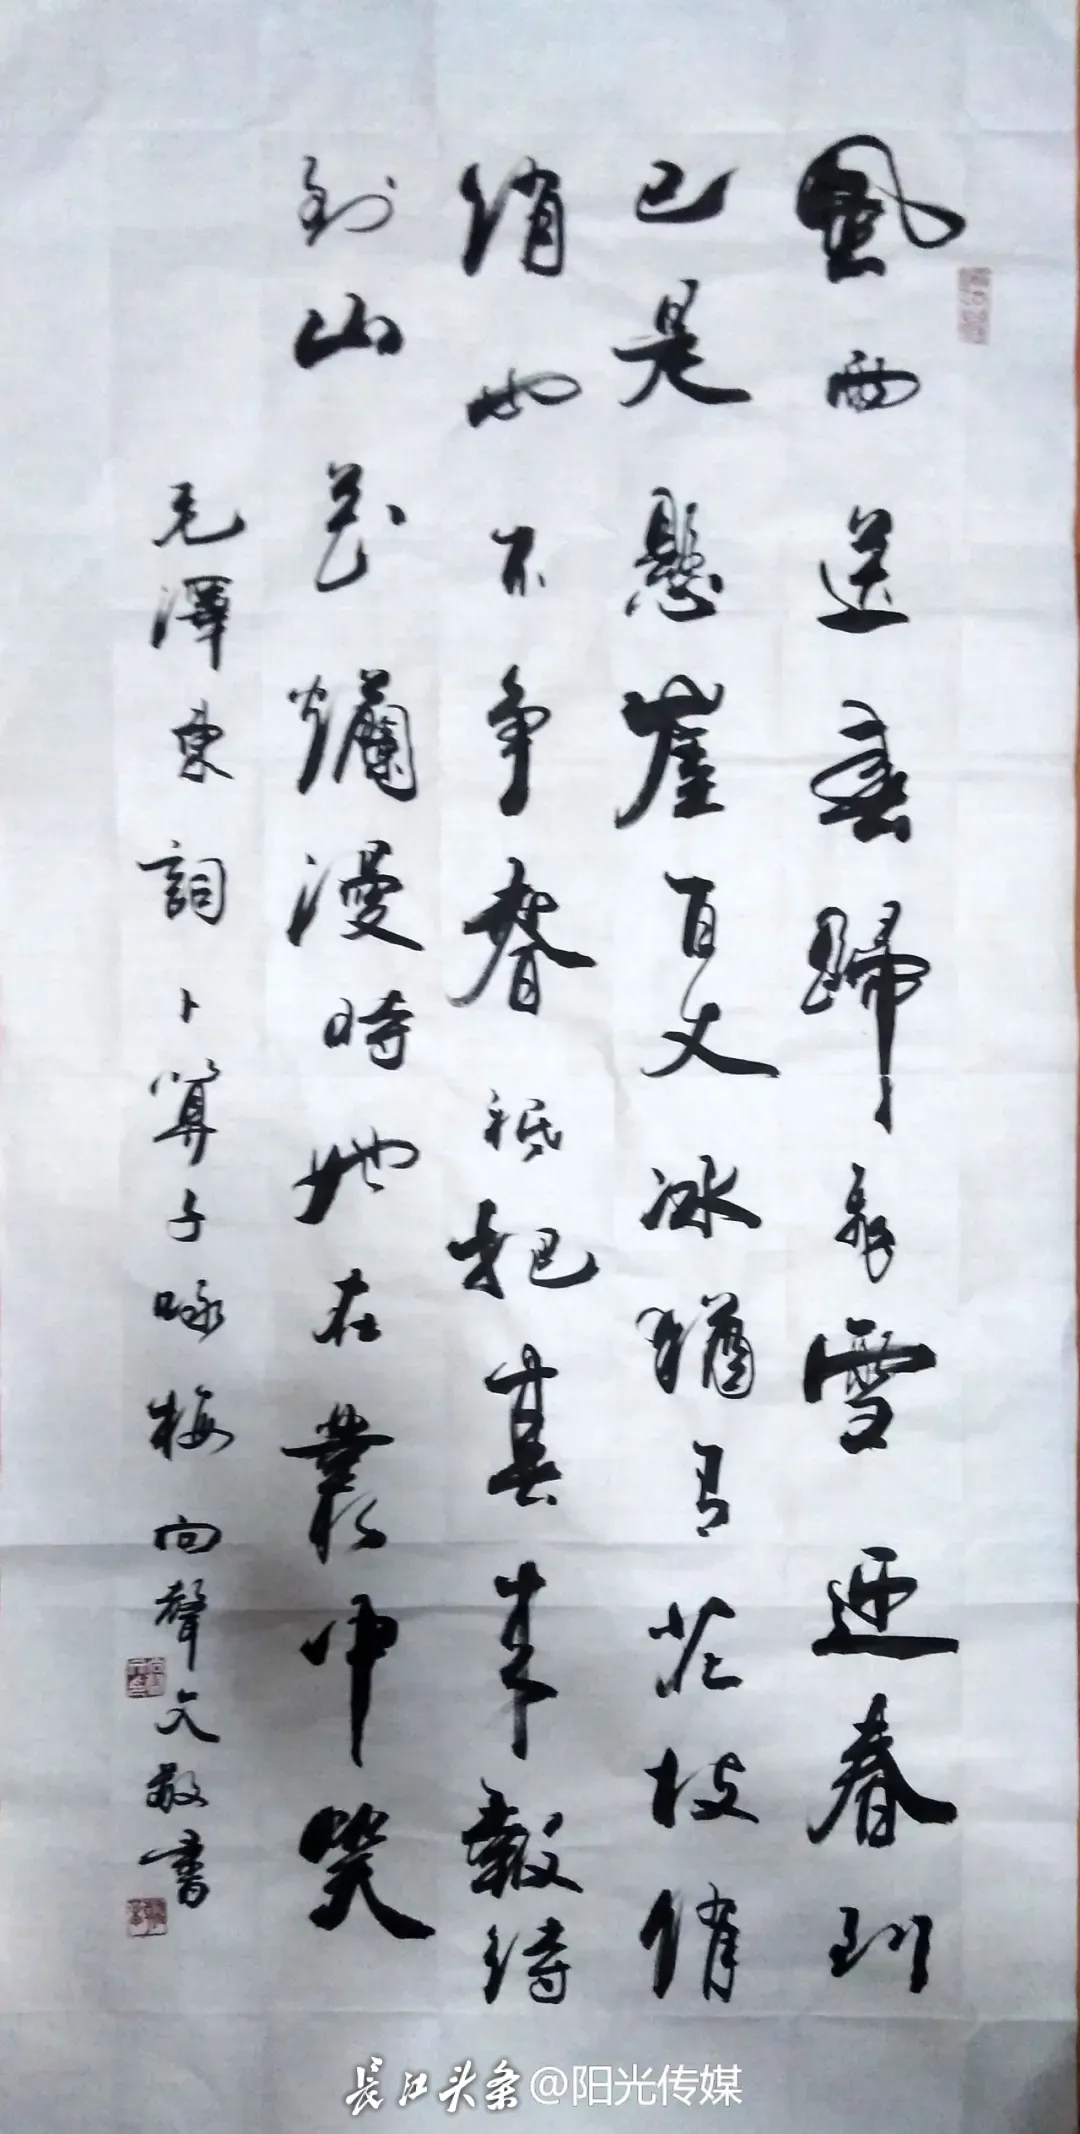 風雨送春歸飛雪迎春到
已是懸崖百丈冰猶有花枝俏
俏也不争春祇把春来報待
到山花爛漫時她在叢中笑
毛澤東詞卜算子咏梅向聲文敬書
長江头条@阳光传媒